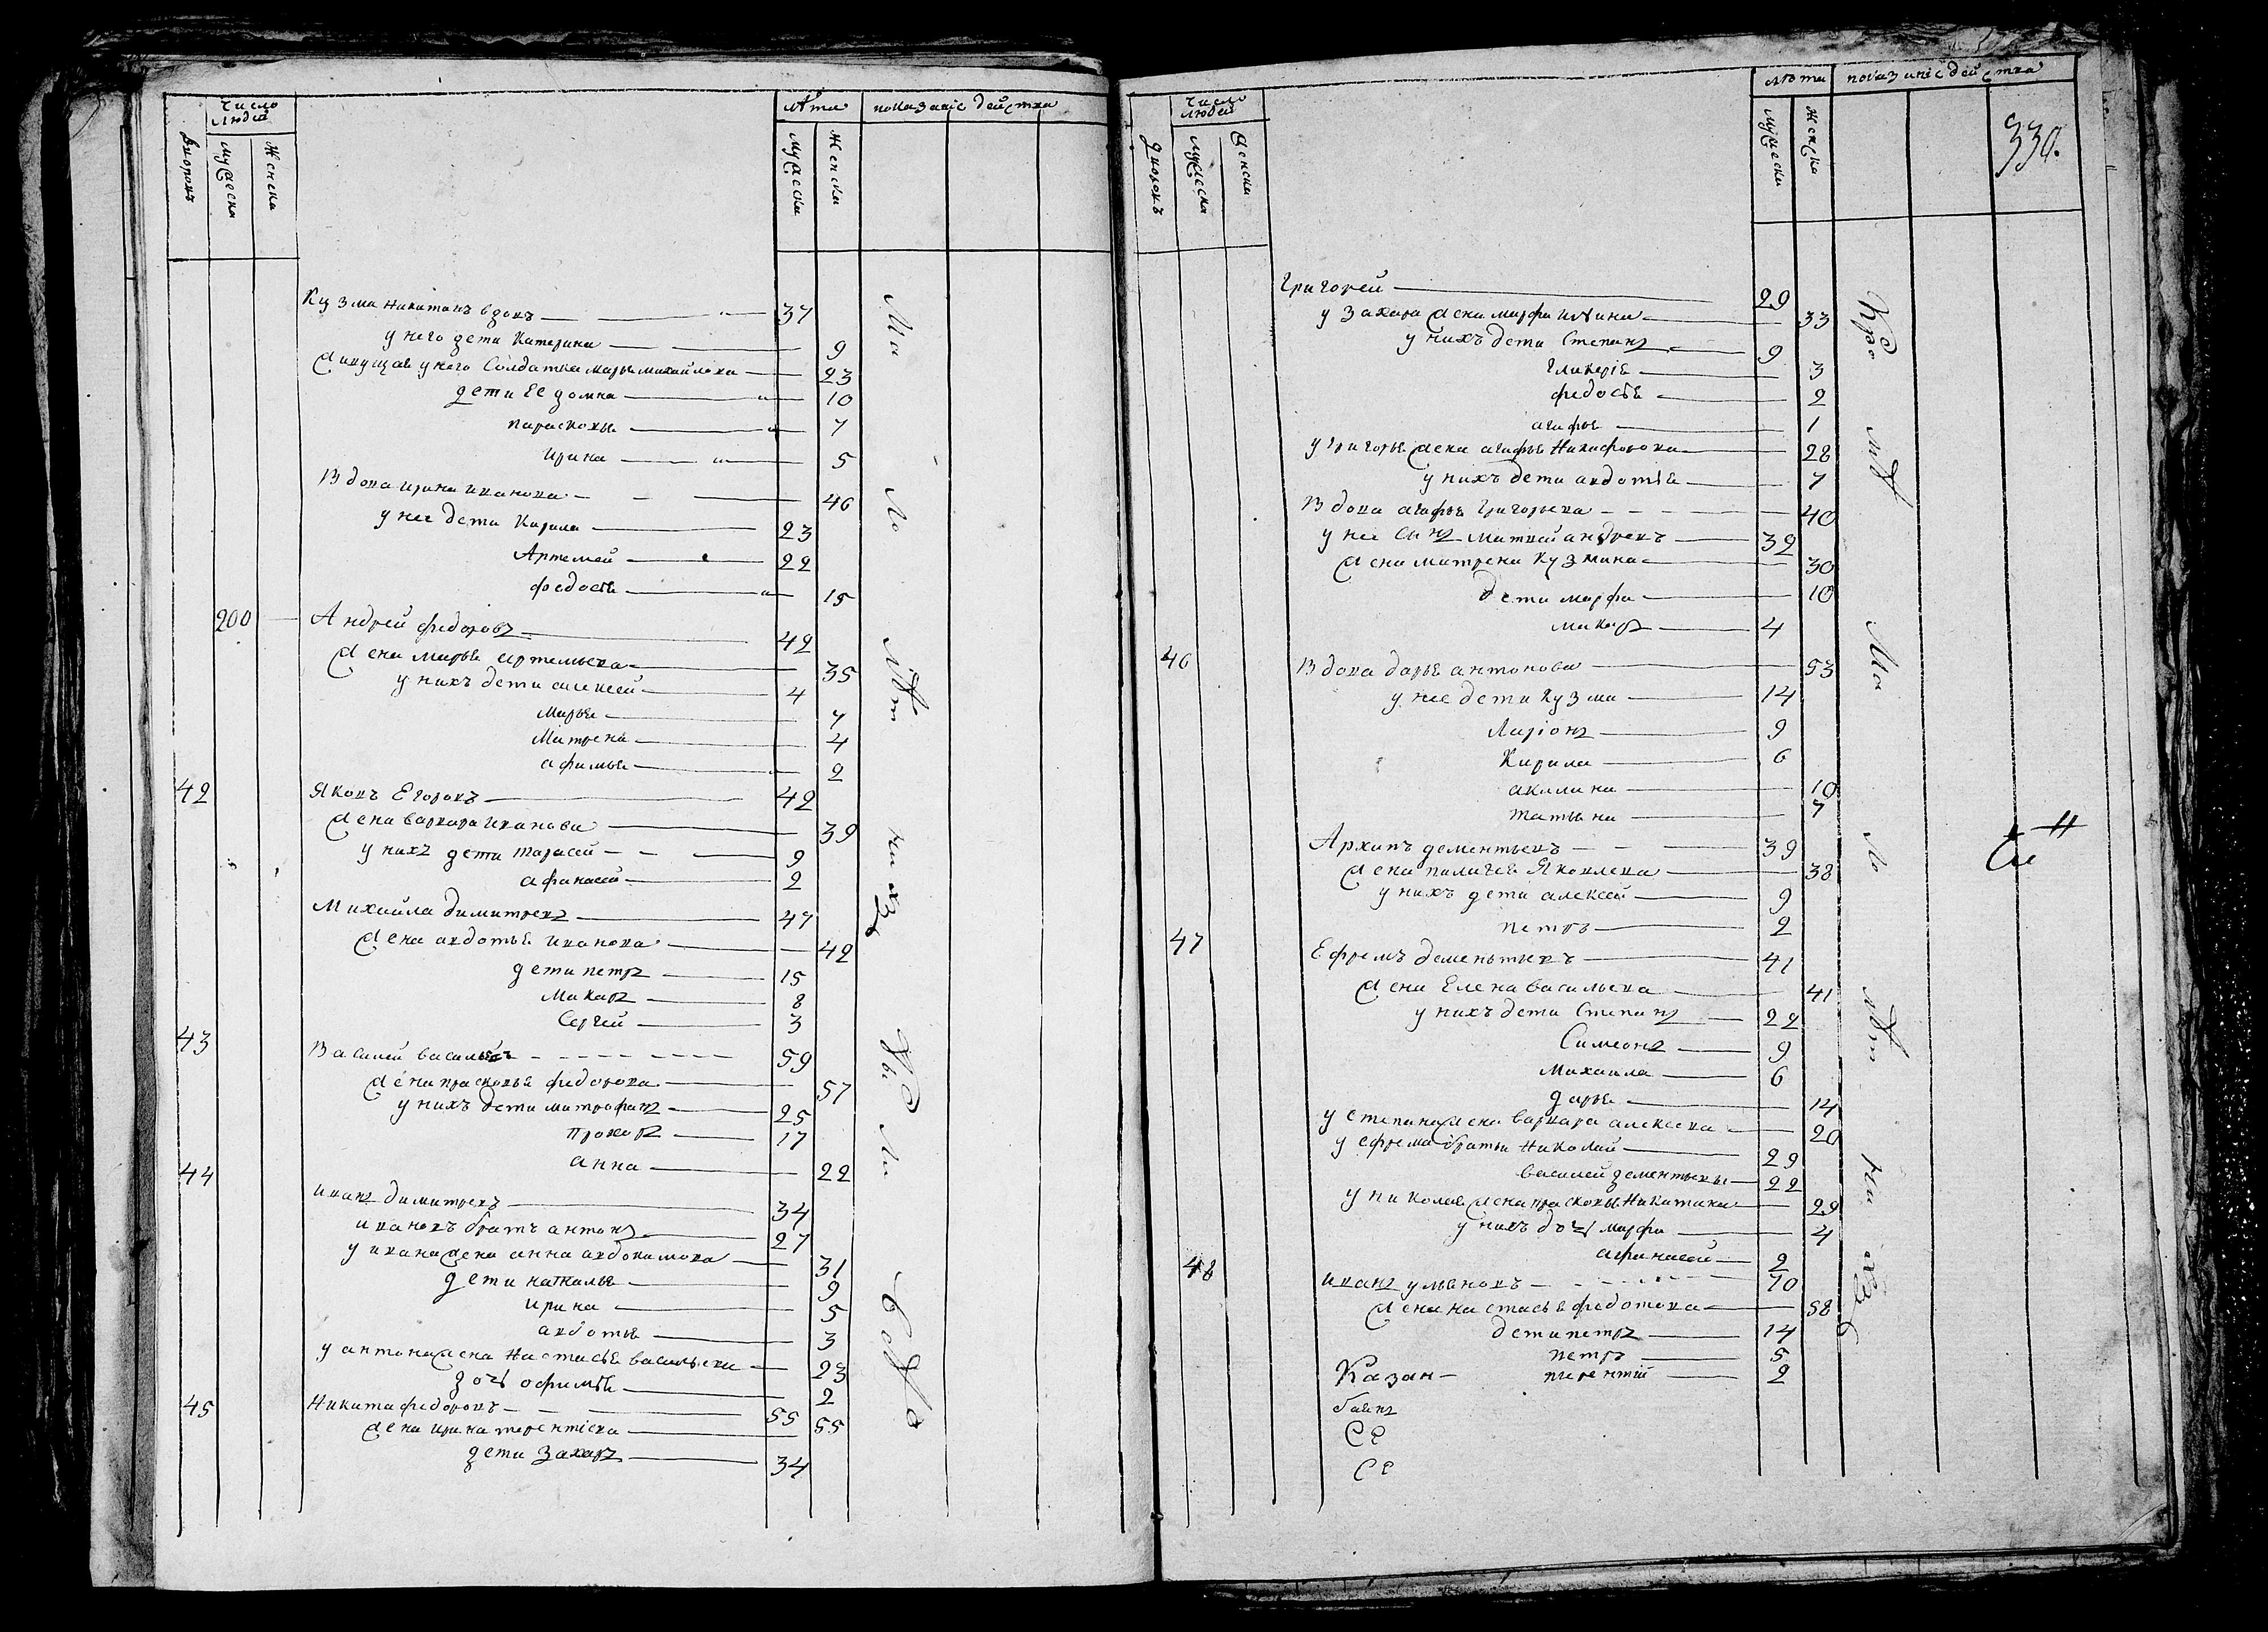 Число людей
лѣта
показаніе действа
дворовъ
мужеска
женска
мужеска
женска
Кузма Никитинъ вдовъ 37
у него дети Катерина 9
живущая у него Солдатка Марья михайлова 23
дети Ее домна 10
парасковья 7
Ирина 5
Вдова ирина иванова 46
у нее дети Кирила 23
Артемей 22
федосья 15
200 Андрей федоровъ 42
жена марья артемьева 35
у нихъ дети алексей 4
Марья 7
Матрена 4
афимья 2
42 Яковъ Егоровъ 42
жена варвара иванова 39
у нихъ дети тарасей 9
афанасей 2
Михайла димитревъ 47
жена авдотья иванова 42
дети петръ 15
Макаръ 8
Сергей 3
43 Василей васильевъ 59
жена прасковья федорова 57
у нихъ дети митрофанъ 25
Прохоръ 17
анна 22
44 иванъ димитревъ 34
ивановъ братъ антонъ 27
у ивана жена анна авдокимова 31
дети наталья 9
ирина 5
авдотья 3
у антона жена Настасья васильева 23
дочь офимья 2
45 Никита федоровъ 55
жена ирина терентіева 55
дети Захаръ 34
Ма ло лѣт ни хъ
Число людей
лѣта
показаніе действа
дворовъ
мужеска
женска
мужеска
женска
330.
Григорей 29
у захара жена марфа ильина 33
у нихъ дети Степанъ 9
Гликерія 3
федосья 2
агафья 1
у григорья жена агафья Никифорова 28
у нихъ дети авдотья 7
Вдова агафья григорьева 40
у нее сынъ матвей андреевъ 32
жена матрена Кузмина 30
дети марфа 10
макаръ 4
46 Вдова дарья антонова 53
у нее дети Кузма 14
Ларіонъ 9
Кирила 6
акилина 10
татьяна 7
Архипъ дементьевъ 39
жена палагея Яковлева 38
у нихъ дети алексей 9
петръ 2
47 Ефремъ дементьевъ 41
жена Елена васильева 41
у нихъ дети Степанъ 22
Симеонъ 9
Михаила 6
дарья 14
у степана жена варвара алексеева 20
у ефрема братья Николай 29
василей дементьевы 22
у николая жена прасковья Никитина 29
у нихъ дочь марфа 4
афанасей 2
48 иванъ ульяновъ 70
жена настасья федотова 58
дети петръ 14
петръ 5
Казан- терентій 2
Ма ло лѣт ни хъ